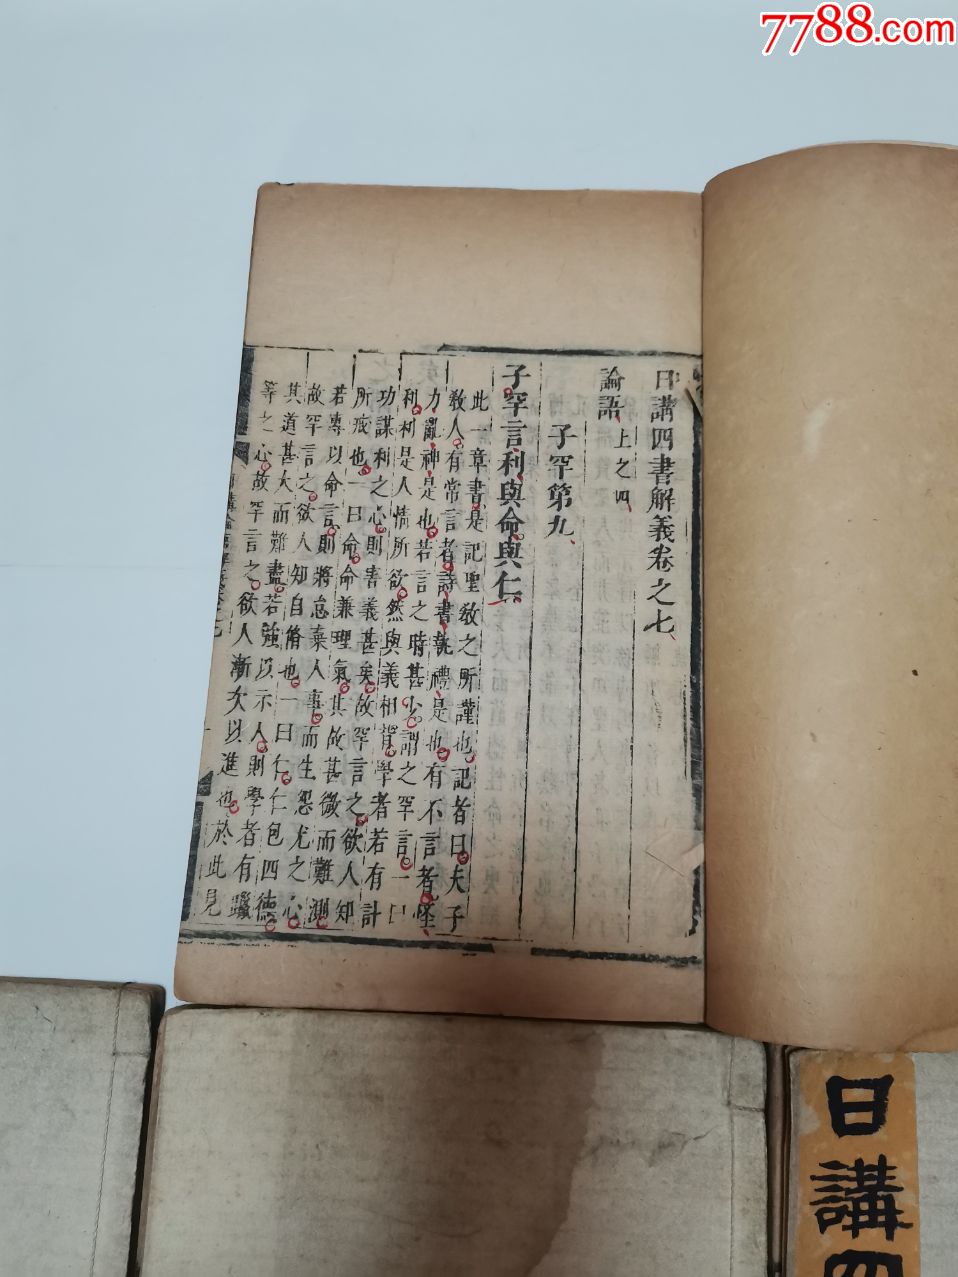 7788.com
日講四書解義卷之七
論語 上之四
子罕第九
子罕言利與命與仁
此一章書是記聖教之所謹也記者曰夫子
教人有常言者詩書執禮是也有不言者怪
力亂神是也若言之時甚少謂之罕言一曰
利利是人情所欲然與義相背學者若有計
功謀利之心則害義甚矣故罕言之欲人知
所戒也一曰命命兼理氣其故甚微而難測
若專以命言則將怠棄人事而生怨尤之心
故罕言之欲人知自脩也一曰仁仁包四德
其道甚大而難盡若強以示人則學者有躐
等之心故罕言之欲人漸次以進也於此見
日講四